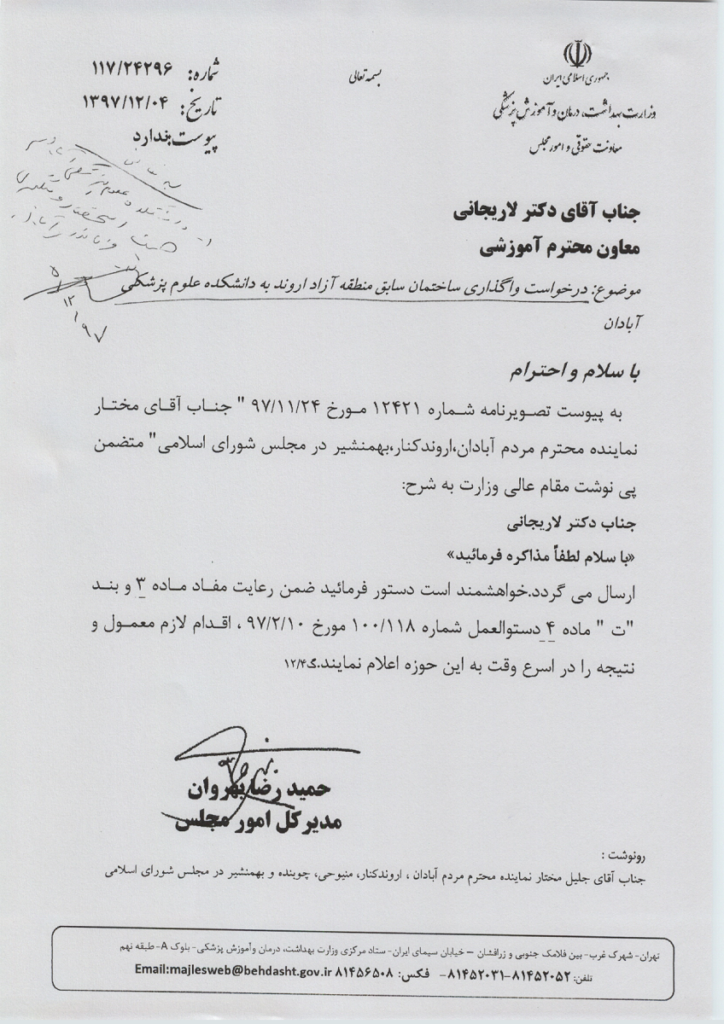 جمهوری اسلامی ایران
وزارت بهداشت، درمان و آموزش پزشکی
معاونت حقوقی و امور مجلس
بسمه تعالی
شماره: ۱۱۷/۲۴۲۹۶
تاریخ: ۱۳۹۷/۱۲/۰۴
پیوست: ندارد
جناب آقای دکتر لاریجانی
معاون محترم آموزشی
موضوع: درخواست واگذاری ساختمان سابق منطقه آزاد اروند به دانشکده علوم پزشکی
آبادان
با سلام و احترام
به پیوست تصویرنامه شماره ۱۲۴۲۱ مورخ ۹۷/۱۱/۲۴ " جناب آقای مختار
نماینده محترم مردم آبادان،اروندکنار،بهمنشیر در مجلس شورای اسلامی" متضمن
پی نوشت مقام عالی وزارت به شرح:
جناب دکتر لاریجانی
«با سلام لطفاً مذاکره فرمائید»
ارسال می گردد.خواهشمند است دستور فرمائید ضمن رعایت مفاد ماده ۳ و بند
"ت " ماده ۴ دستوالعمل شماره ۱۰۰/۱۱۸ مورخ ۹۷/۲/۱۰ ، اقدام لازم معمول و
نتیجه را در اسرع وقت به این حوزه اعلام نمایند.گ۱۲/۴
حمید رضا بهروان
مدیر کل امور مجلس
رونوشت :
جناب آقای جلیل مختار نماینده محترم مردم آبادان ، اروندکنار، منیوحی، چوبنده و بهمنشیر در مجلس شورای اسلامی
تهران- شهرک غرب- بین فلامک جنوبی و زرافشان – خیابان سیمای ایران- ستاد مرکزی وزارت بهداشت، درمان وآموزش پزشکی- بلوک A- طبقه نهم
تلفن: ۸۱۴۵۲۰۵۲-۸۱۴۵۲۰۳۱- فکس: ۸۱۴۵۶۵۰۸ Email:majlesweb@behdasht.gov.ir